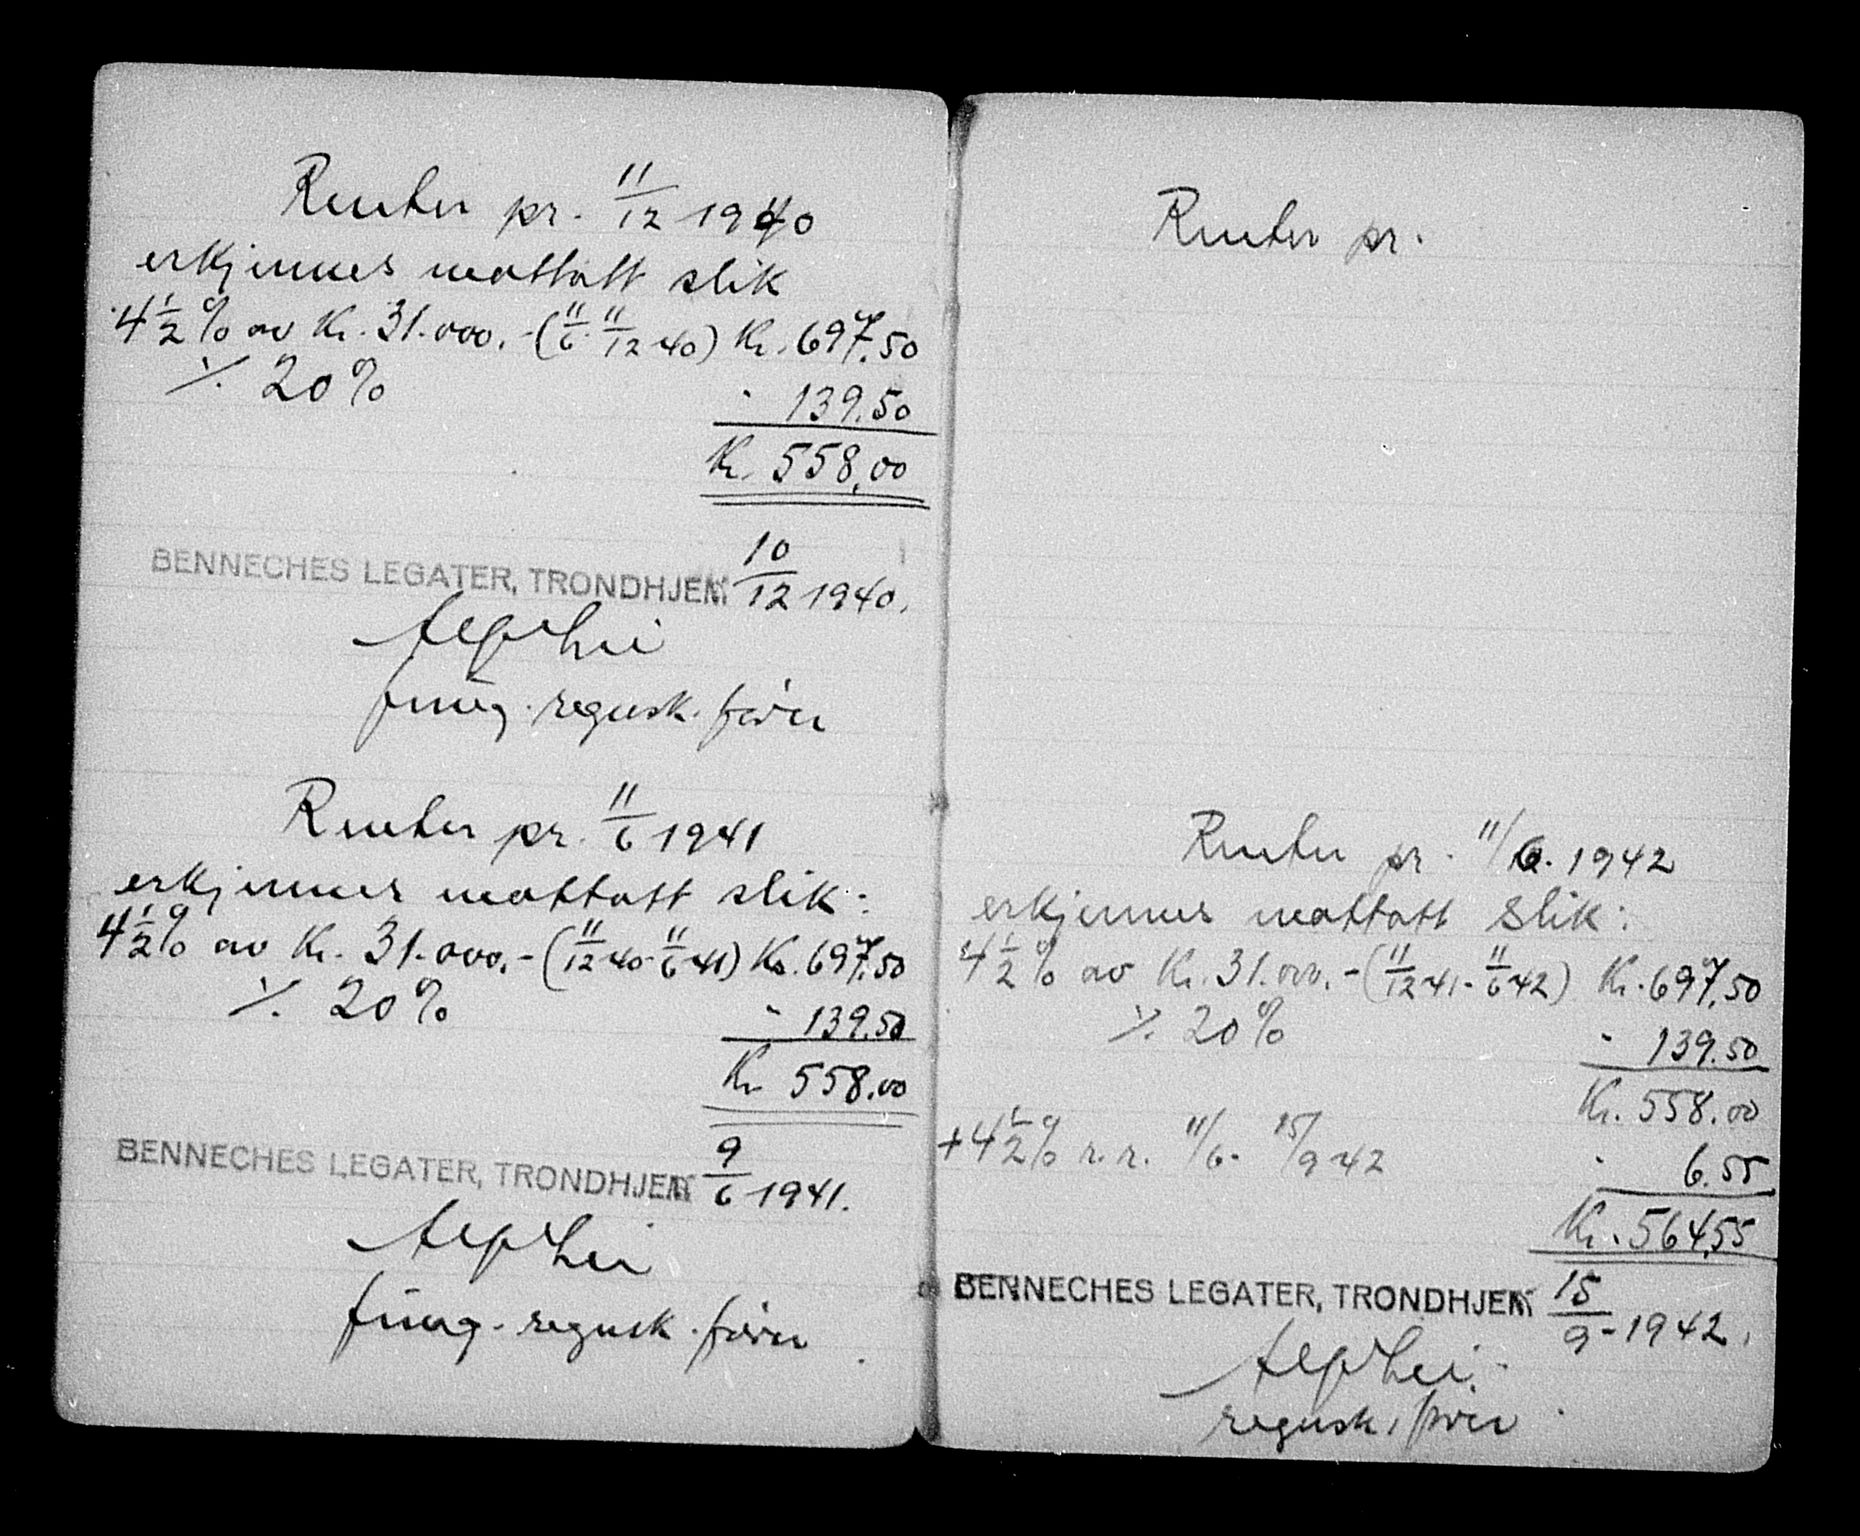 Renter pr. 11/12 1940
erkjennes mottatt slik
4½% av Kr. 31.000.- (11/6-11/12 40) Kr. 697.50
٪ 20% " 139.50
Kr. 558,00
BENNECHES LEGATER, TRONDHJEM 10/12 1940.
fung. regnsk. fører
Renter pr. 11/6 1941
erkjennes mottatt slik:
4½% av Kr. 31.000.- (11/12 40-11/6 41) Kr. 697.50
٪ 20% " 139.50
Kr 558.00
BENNECHES LEGATER, TRONDHJEM 9/6 1941.
fung. regnsk. fører
Renter pr.
Renter pr. 11/6. 1942
erkjennes mottatt slik:
4½% av Kr. 31.000.- (11/12 41-11/6 42) Kr. 697.50
٪ 20% " 139.50
Kr. 558.00
+ 4½% r.r. 11/6- 15/9 42 " 6.55
Kr. 564,55
BENNECHES LEGATER, TRONDHJEM 15/9-1942.
regnsk. fører